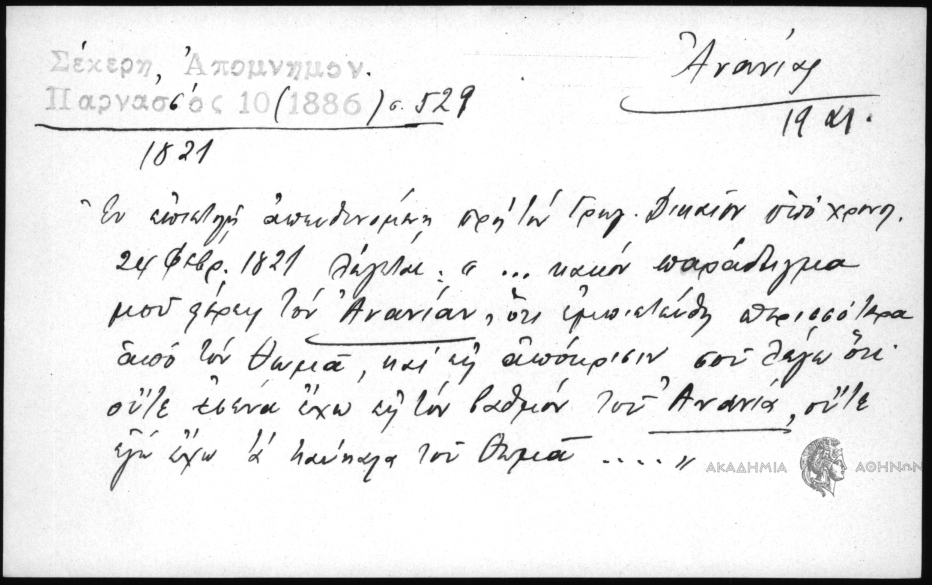 Σέκερη, Ἀπομνημον.
Παρνασσός 10 (1886) σ. 529
Ἀνανίας
1821
Ἐν ἐπιστολῇ ἀπευθυνομένῃ πρὸς τὸν Γρηγ. Δικαῖον ὑπὸ χρονολ.
24 Φεβρ. 1821 λέγεται: « ... κακόν παράδειγμα
μοῦ φέρεις τὸν Ἀνανίαν, ὅτι ἐμπιστεύθη περισσότερα
ἀπό τὸν Θωμᾶ, καὶ εἰς ἀπόκρισιν σοῦ λέγω ὅτι
οὔτε ἐσένα ἔχω εἰς τὸν βαθμόν τοῦ Ἀνανία, οὔτε
ἐγώ ἔχω τὰ τοῦ Θωμᾶ .... »
ΑΚΑΔΗΜΙΑ ΑΘΗΝΩΝ